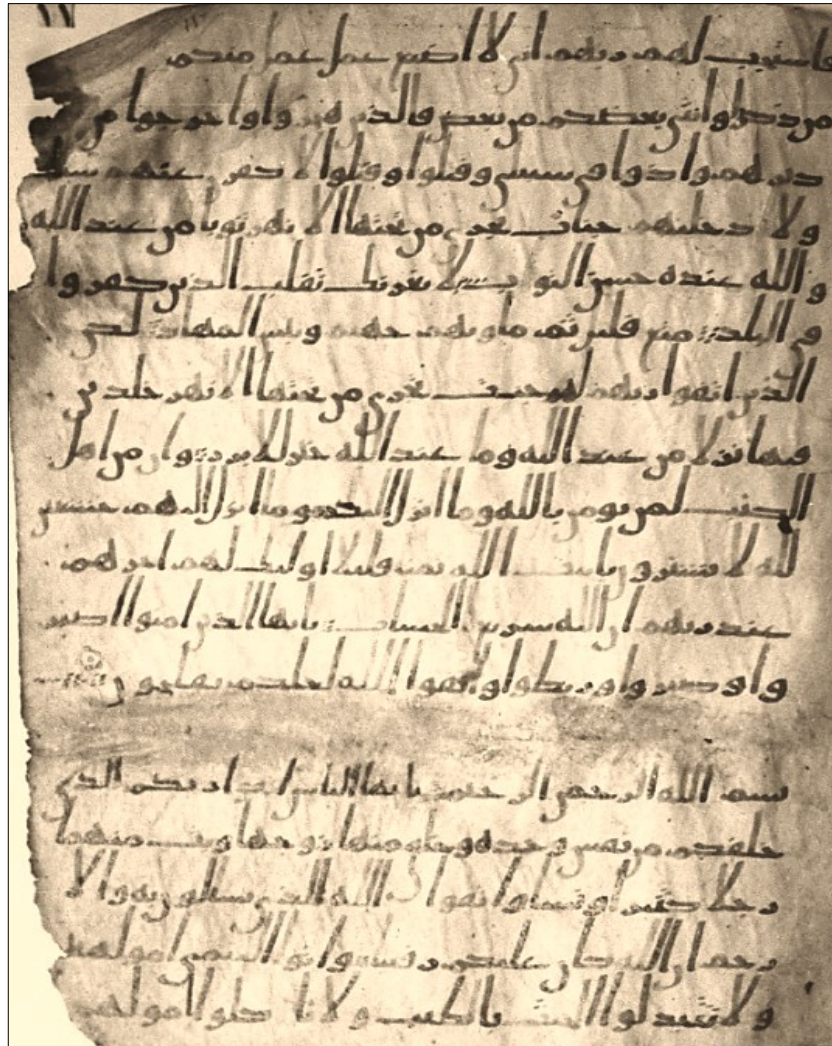 فاستجب لهم ربهم انى لا اضيع عمل عمل منكم
من ذكر او انثى بعضكم من بعض فالذين هجروا واخرجوا من
ديرهم واوذوا فى سبيلى وقتلوا وقتلوا لاكفرن عنهم سيا
ولادخلنهم جنات تجرى من تحتها الانهر ثوبا من عند الله
والله عنده حسن الثوب لا يغرنك تقلب الذين كفروا
فى البلد متع قليل ثم ماويهم جهنم وبيس المهاد لكن
الذين اتقوا ربهم لهم جنت تجرى من تحتها الانهر خلدين
فيها نزلا من عند الله وما عند الله خير للابرر وان من اهل
الكتب لمن يومن بالله وما انزل اليكم وما انزل اليهم خشعين
لله لا يشترون بايت الله ثمنا قليلا اوليك لهم اجرهم
عند ربهم ان الله سريع الحساب يايها الذين امنوا اصبر
وا وصبروا وربطوا واتقوا الله لعلكم تفلحون
بسم الله الرحمن الرحيم يايها الناس اتقوا ربكم الذى
خلقكم من نفس وحده وخلق منها زوجها وبث منهما
رجلا كثيرا ونسا واتقوا الله الذى تسالون به والا
رحم ان الله كان عليكم رقيبا واتوا اليتمى امولهم
ولا تتبدلوا الخبيث بالطيب ولا تاكلوا امولهم